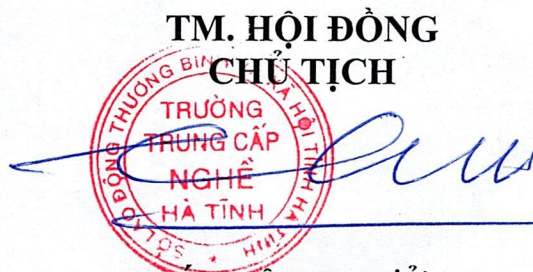 TM. HỘI ĐỒNG
CHỦ TỊCH
SỞ LAO ĐỘNG THƯƠNG BINH XÃ HỘI TỈNH HÀ TĨNH
TRƯỜNG
TRUNG CẤP
NGHỀ
HÀ TĨNH